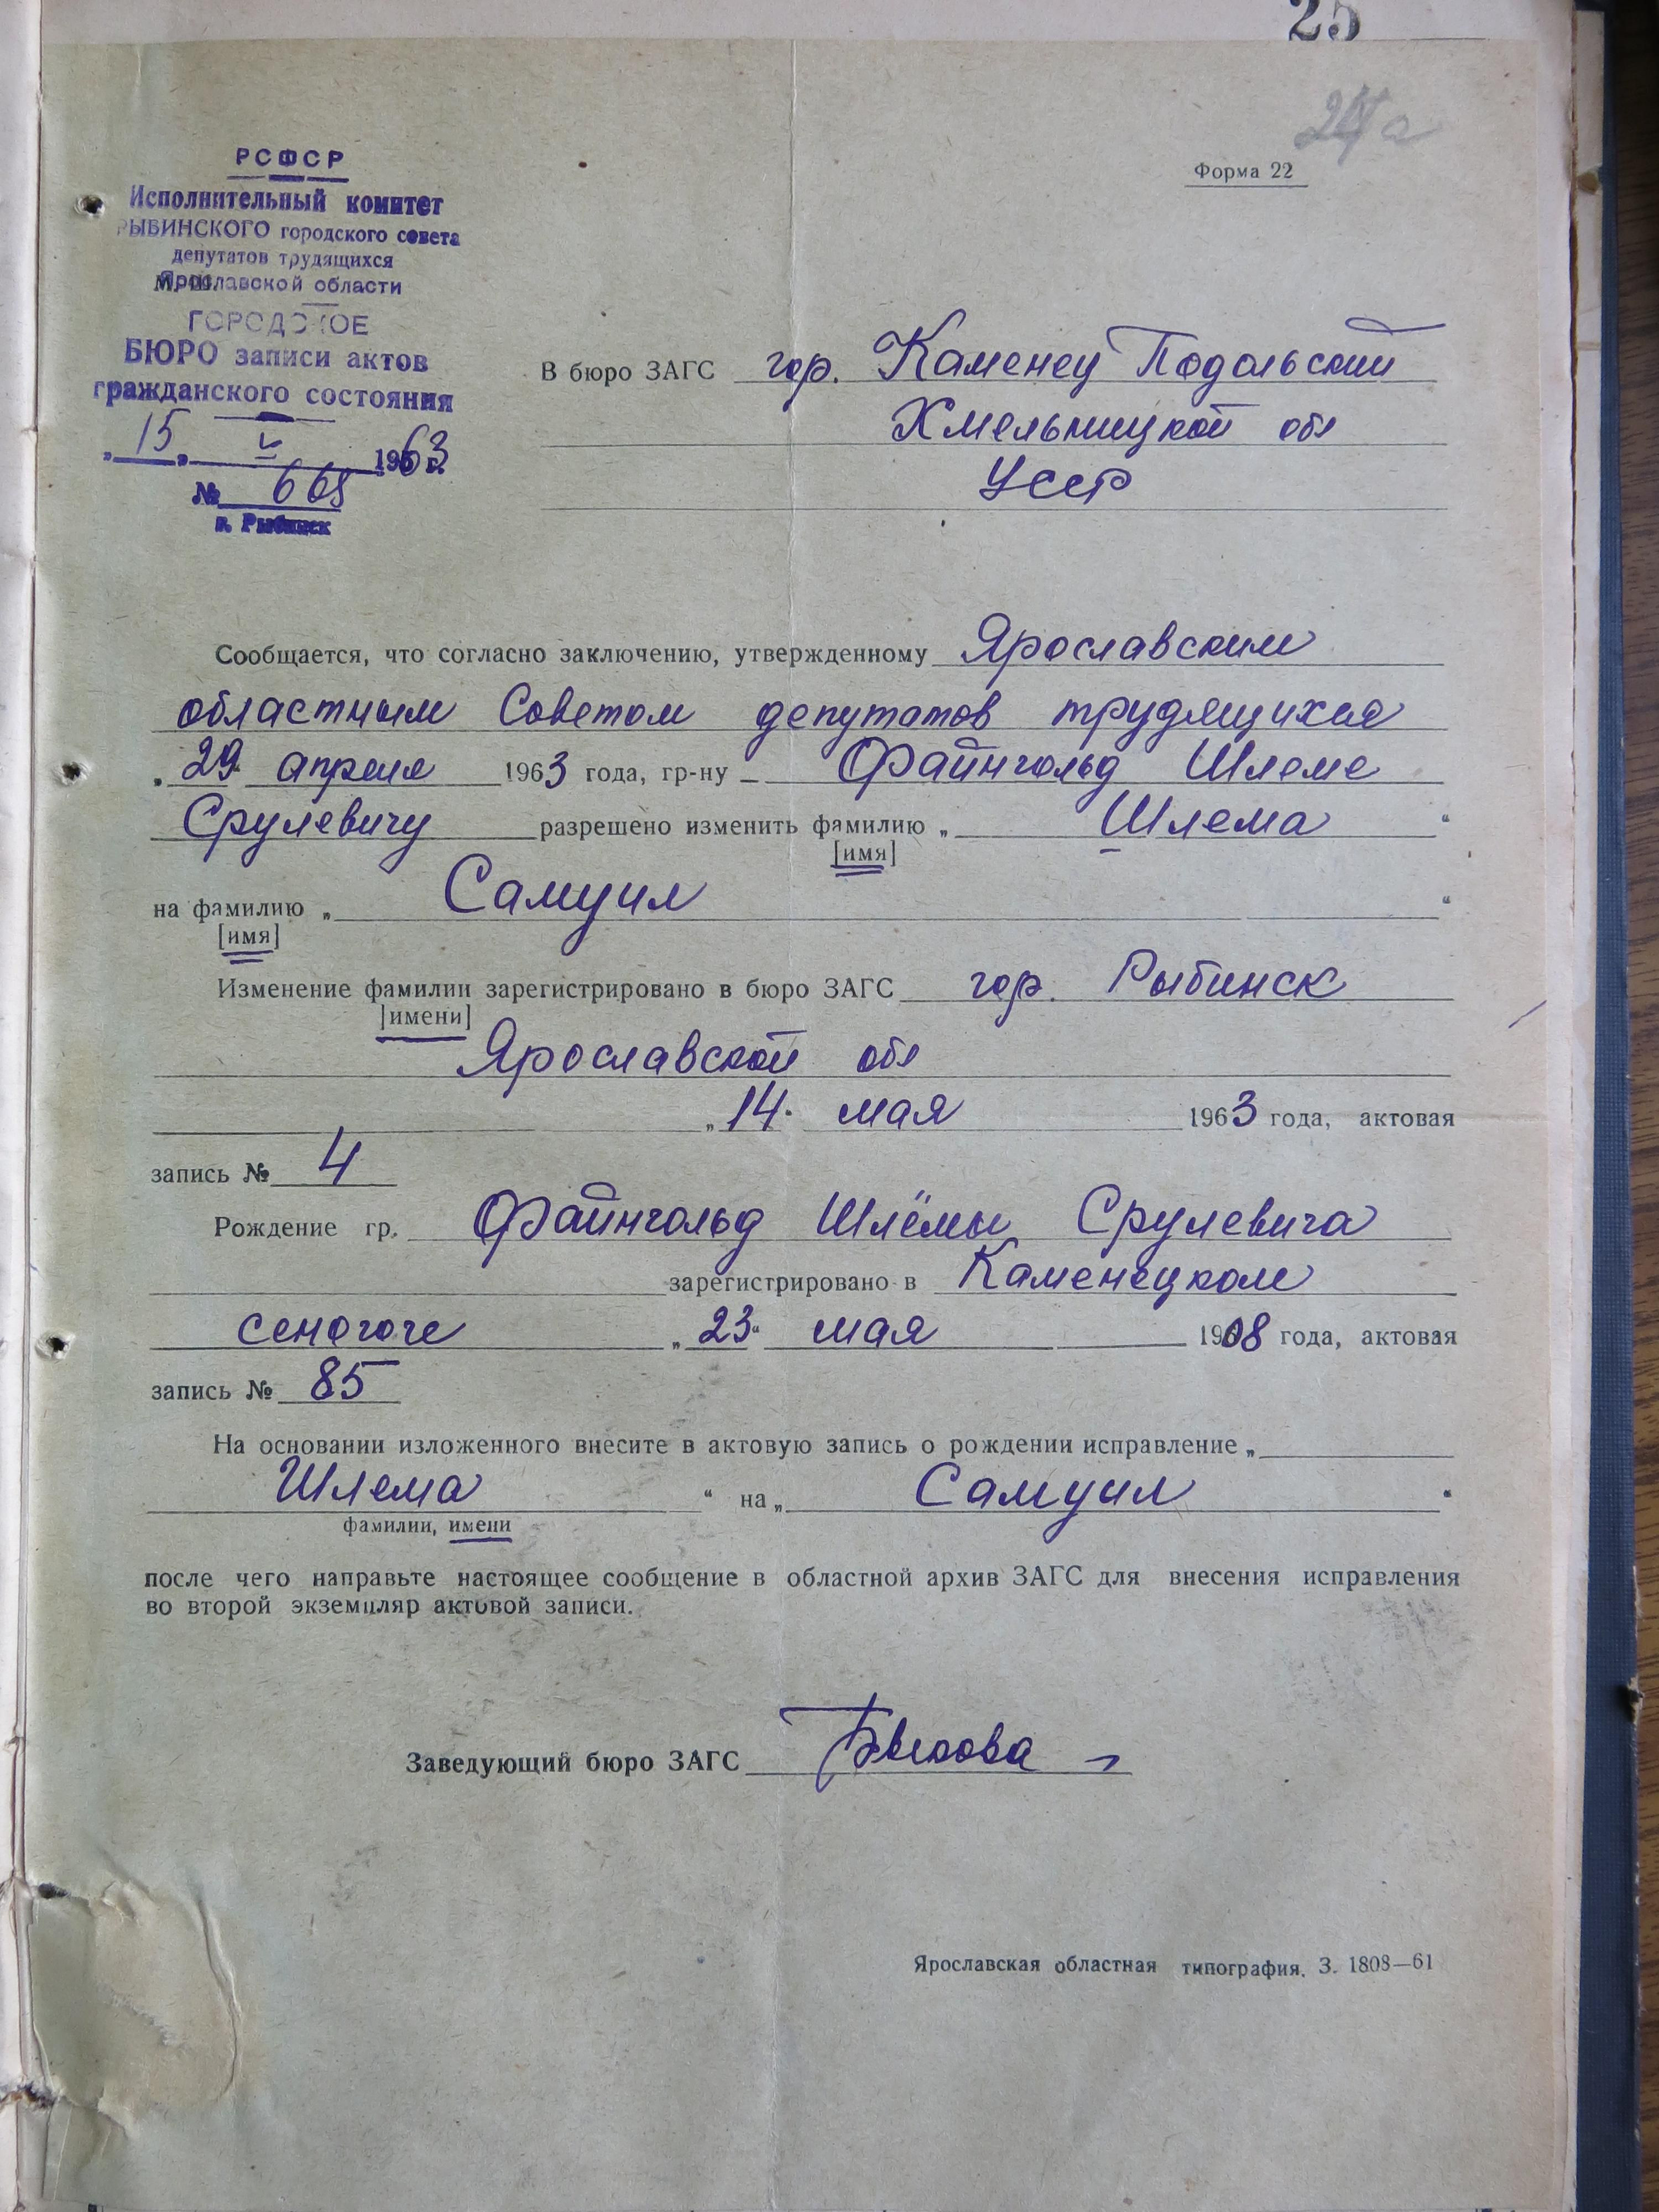 25
24а
РСФСР
Исполнительный комитет
РЫБИНСКОГО городского совета
депутатов трудящихся
Ярославской области
ГОРОДСКОЕ
БЮРО записи актов
гражданского состояния
„ 15 „ V 1963 г.
№ 668
г. Рыбинск
Форма 22
В бюро ЗАГС гор. Каменец Подольский
Хмельницкой обл
УССР
Сообщается, что согласно заключению, утвержденному Ярославским
областным Советом депутатов трудящихся
„ 29 апреля 1963 года, гр-ну – Файнгольд Шлеме
Срулевичу разрешено изменить фамилию „ Шлема “
[имя]
на фамилию „ Самуил “
[имя]
Изменение фамилии зарегистрировано в бюро ЗАГС гор. Рыбинск
]имени]
Ярославской обл
„ 14 “ мая 1963 года, актовая
запись № 4
Рождение гр. Файнгольд Шлёмы Срулевича
зарегистрировано в Каменецком
сенагоге „ 23 “ мая 1908 года, актовая
запись № 85
На основании изложенного внесите в актовую запись о рождении исправление „
Шлема “ на „ Самуил “
фамилии, имени
после чего направьте настоящее сообщение в областной архив ЗАГС для внесения исправления
во второй экземпляр актовой записи.
Заведующий бюро ЗАГС
Ярославская областная типография. З. 1808—61